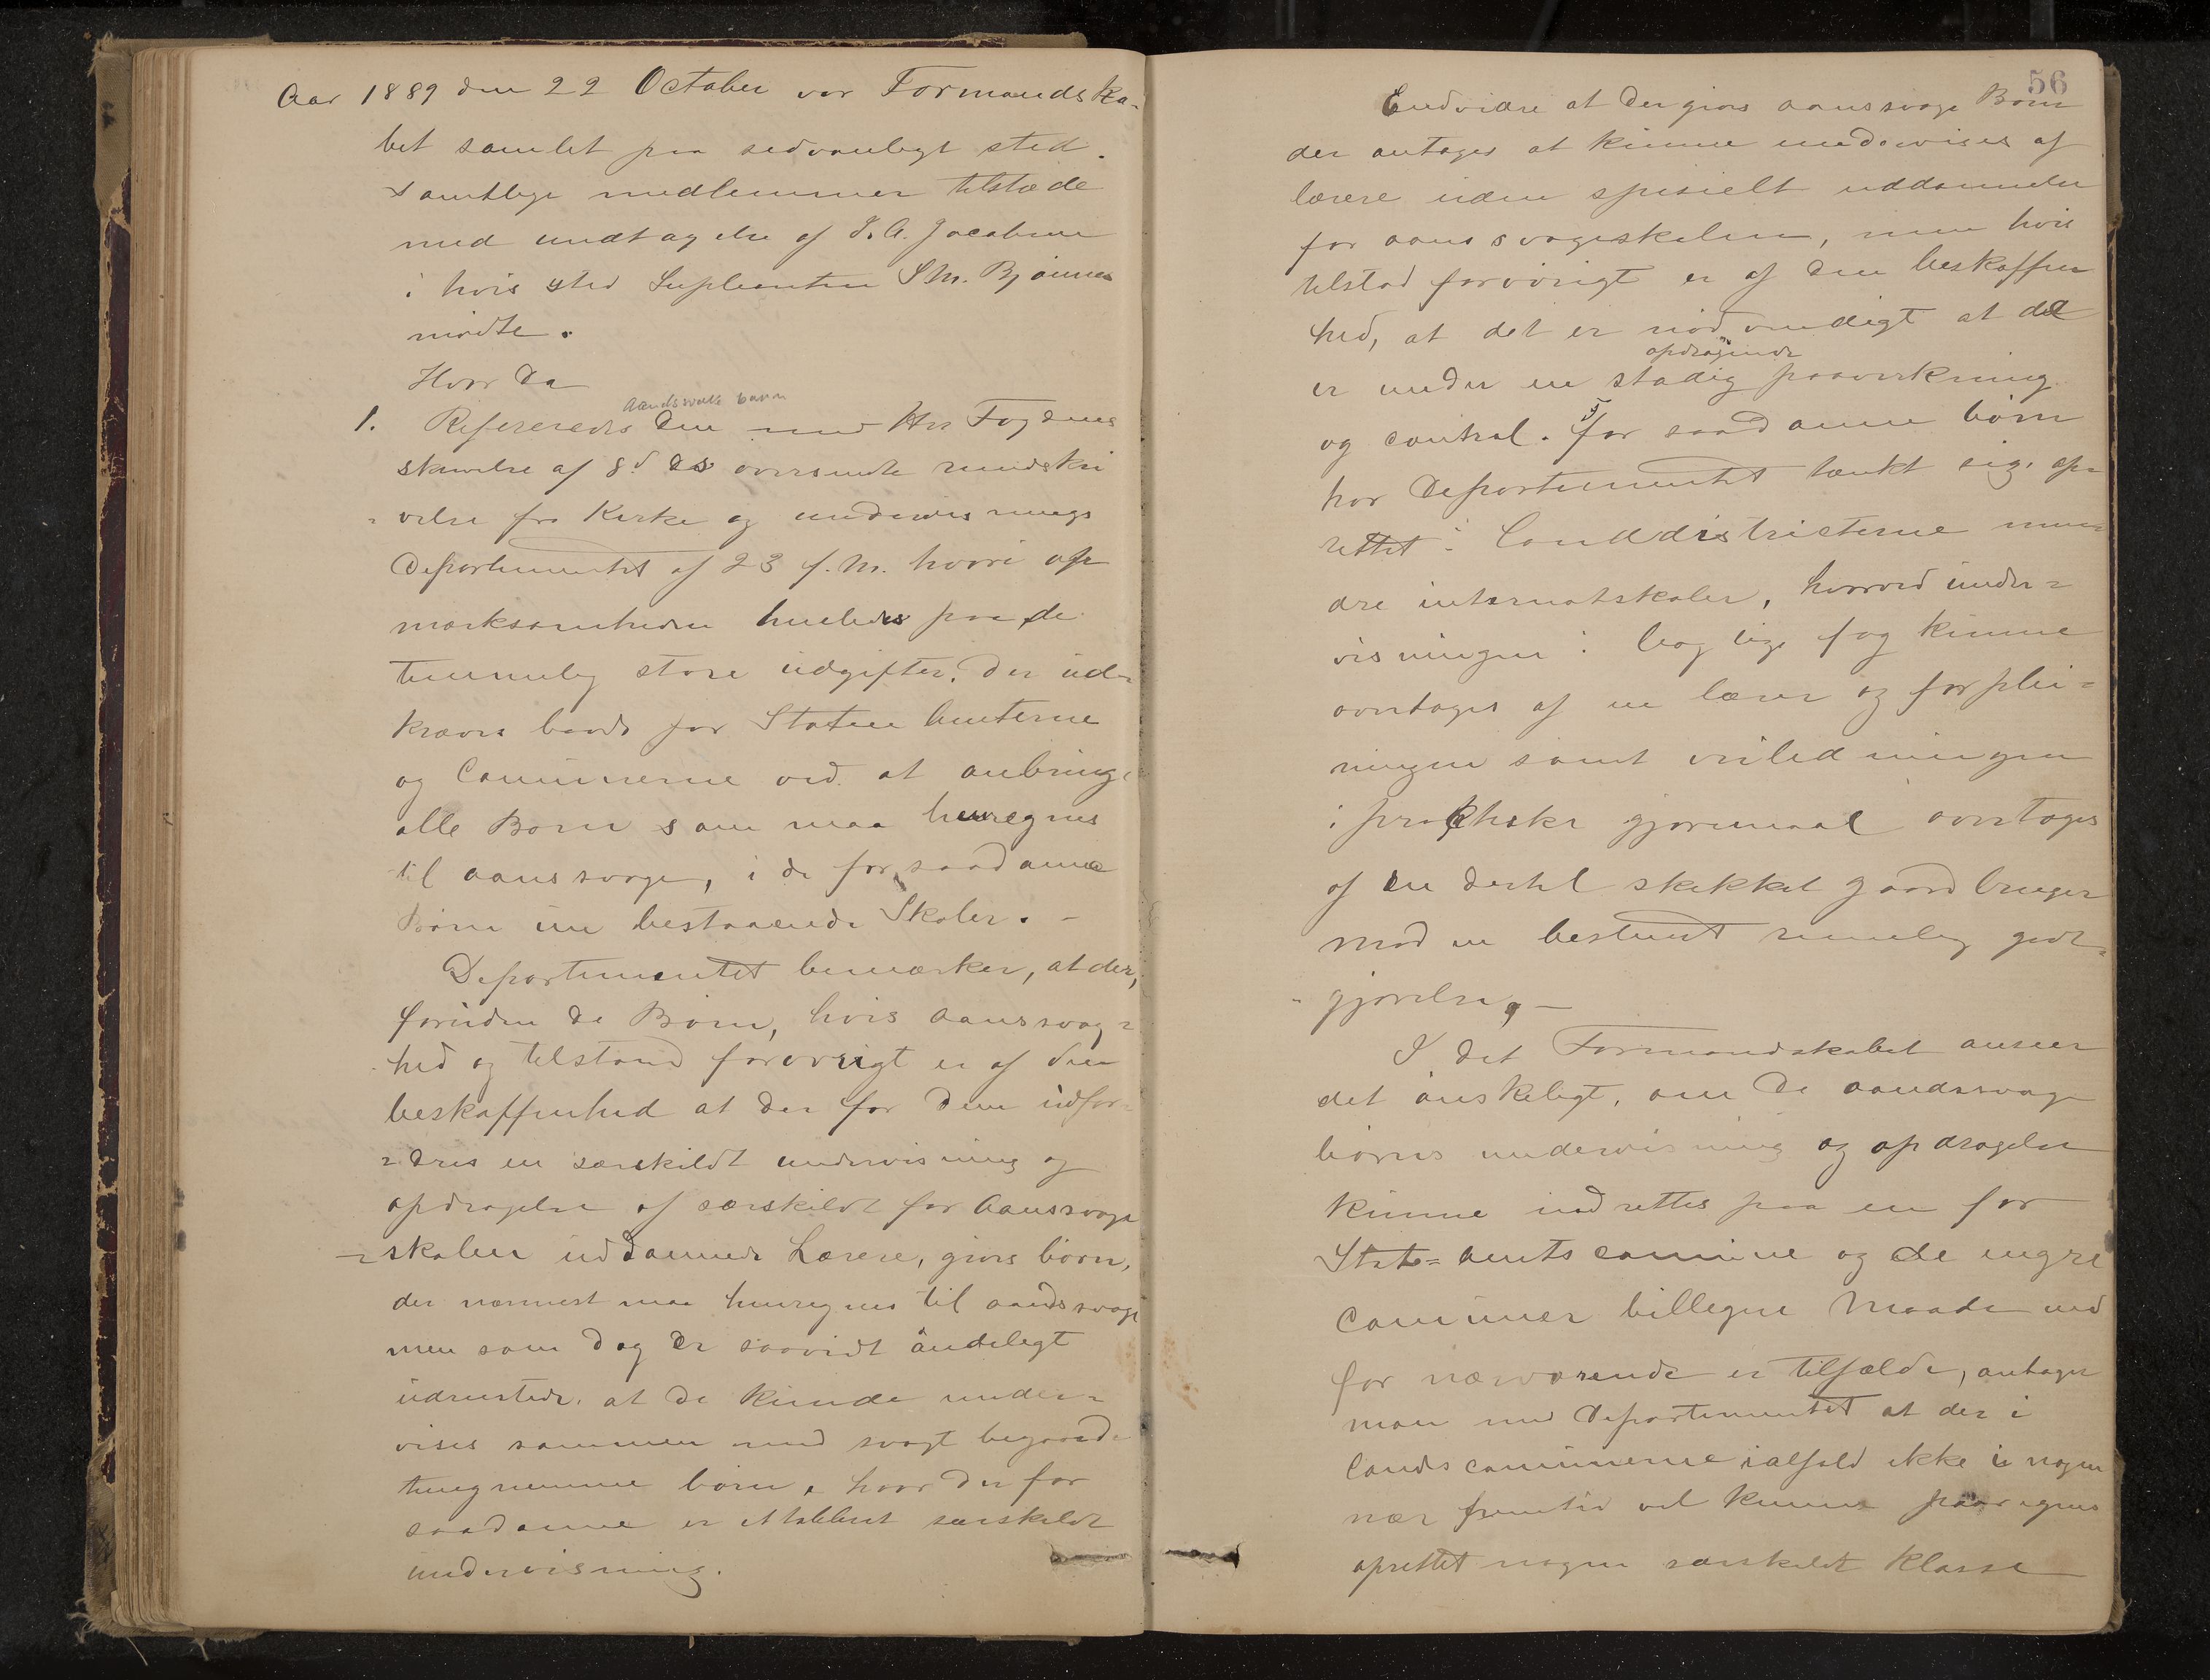 Aar 1889 den 22 October var Formandska-
bet samlet paa sedvanligt sted.
samtlige medlemmer tilstæde
med undtagelse af J. A. Jacobsen
i hvis sted Supleanten S M. Bjønnes
mødte.
Hvor da
Aandsvake barn
1. Refereredes den med Hr Fogdens
skrivelse af 8d ds oversendte rundskri
=velse fra Kirke og undervisnings
Departementet af 23 f. M. hvori op
mærksomheden henledes paa de
temmelig store udgifter, der ud=
kræves baade for Staten Amterne
og Communerne ved at anbringe
alle Børn som maa henregnes
til aanssvage, i de for saadanne
Børn nu bestaaende Skoler. -
Departementet bemærker, at der,
foruden de Børn, hvis aanssvag=
hed og tilstand forøvrigt er af den
beskaffenhed at der for dem udfor=
=dres en særskildt undervisning og
opdragelse af særskildt for Aanssvage
=skolen uddannede Lærere, gives børn,
der nærmest maa henregnes til aandssvage
men som dog er saavidt åndeligt
udrustede, at de kunde under=
vises sammen med svagt begavede
tungnemme børn, hvor der for
saadanne er etableret særskildt
undervisning.
56
Endvidere at der gives aanssvage Børn
der antages at kunne undervises af
lærere uden spesielt uddannelse
for aanssvageskolen, men hvis
tilstad forøvrigt er af den beskaffen
hed, at det er nødvendigt at de
opdragende
er under en stadig paavirkning
og control. For saadanne børn
har Departementet tænkt sig op=
rettet i Landdistricterne min=
dre internatskoler, hvorved under=
visningen i boglige fag kunne
overtages af en lærer og forplei=
ningen samt veiledningen
i praktiske gjøremaal overtages
af en dertil skikket gaardbruger
mod en bestemt rimelig godt=
gjørelse, -
I det Formandskabet anseer
det ønskeligt, om de aandssvage
børns undervisning og opdragelse
kunne indrettes paa en for
Stats= amtscommune og de engre
Communer billigere Maade end
for nærværende er tilfælde, antager
man med Departementet at der i
Landscommunerne ialfald ikke i nogen
nær fremtid vil kunne paaregnes
oprettet nogen særskildt Klasse